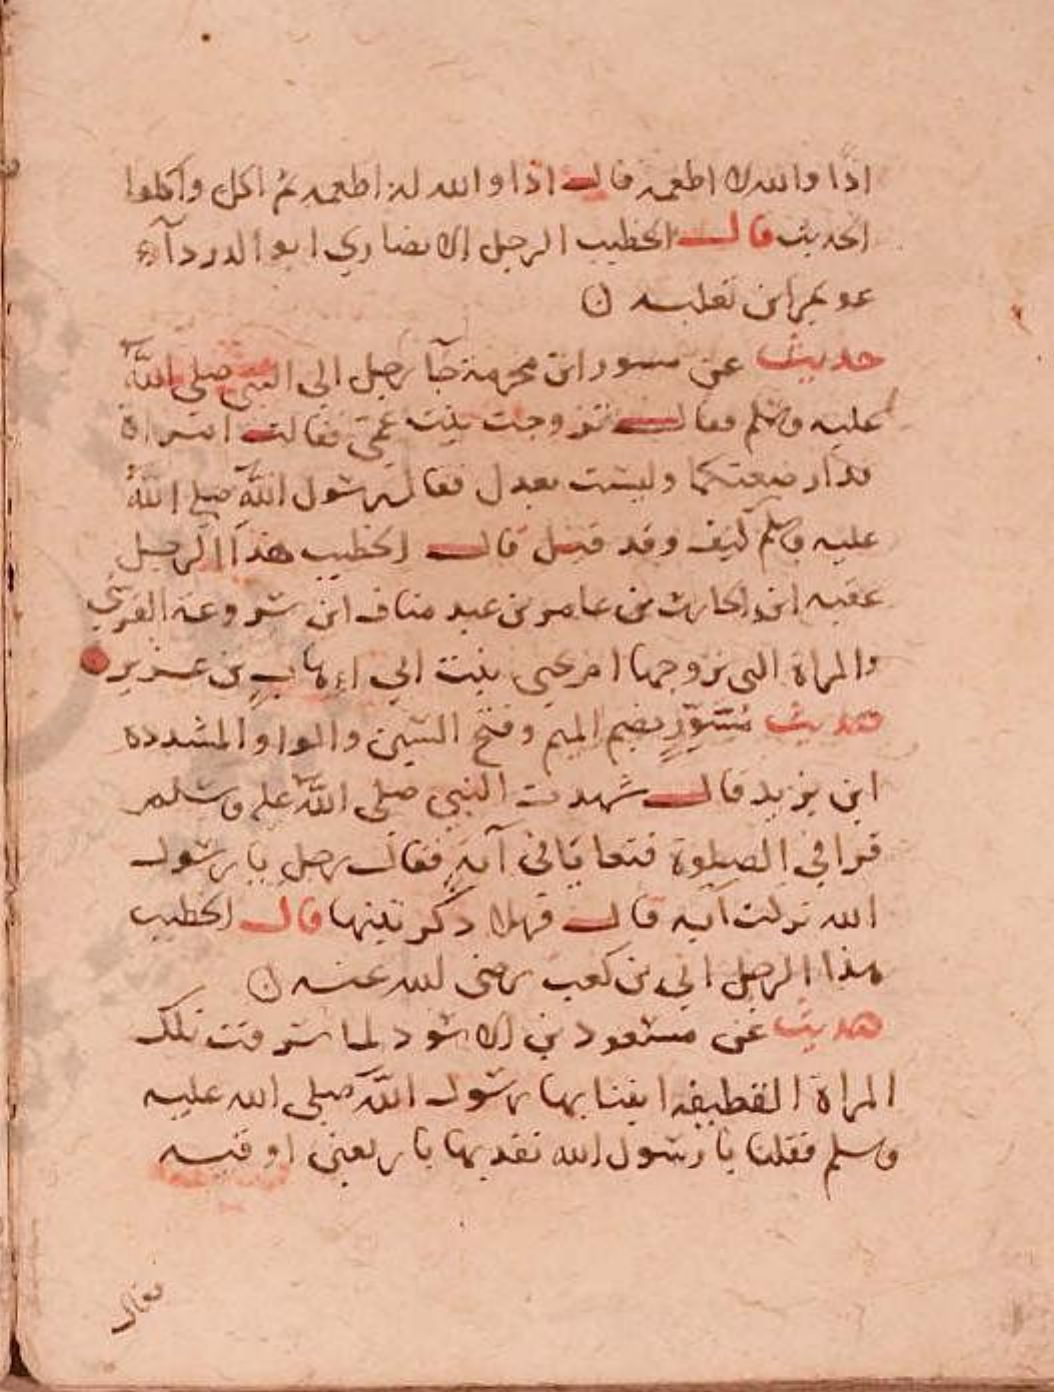 اذا والله لا اطعمه قال اذا والله لا اطعمه ثم اكل واكلوا
الحديث قال الخطيب الرجل الانصاري ابو الدردآء
عويمر ابن ثعلبه ن
حديث عن مسور ابن محرمة جآ رجل الي النبي صلى الله
عليه وسلم فقال تزوجت بنت عمي فقالت امراة
قد ارضعتكما وليست بعدل فقال رسول الله صلى الله
عليه وسلم كيف وقد قيل قال الخطيب هذا الرجل
عقبه ابن الحارث بن عامر بن عبد مناف ابن القرشي
والمراة التي تزوجها ام يحيى بنت ابي اهاب بن عزيز
حديث مسور بضم الميم وفتح السين والواو المشدده
ابن يزيد قال شهدت النبي صلى الله عليه وسلم
قرا في الصلوة فتعايا في آية فقال رجل يا رسول
الله تركت آيه قال فهلا ذكرتنيها قال الخطيب
هذا الرجل ابي بن كعب رضي الله عنه ن
حديث عن مسعود بن الاسود لما سرقت تلك
المراة القطيفه اتينا بها رسول الله صلى الله عليه
وسلم فقلنا يا رسول الله نفديها باربعين اوقيه
فقال